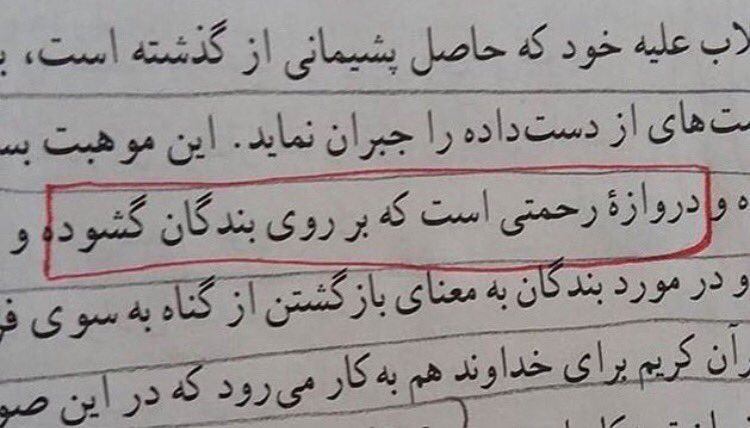 علیه خود که حاصل پشیمانی از گذشته است،
از دست‌داده را جبران نماید. این موهبت
و دروازهٔ رحمتی است که بر روی بندگان گشوده و
و در مورد بندگان به معنای بازگشتن از گناه به سوی
کریم برای خداوند هم به‌کار می‌رود که در این